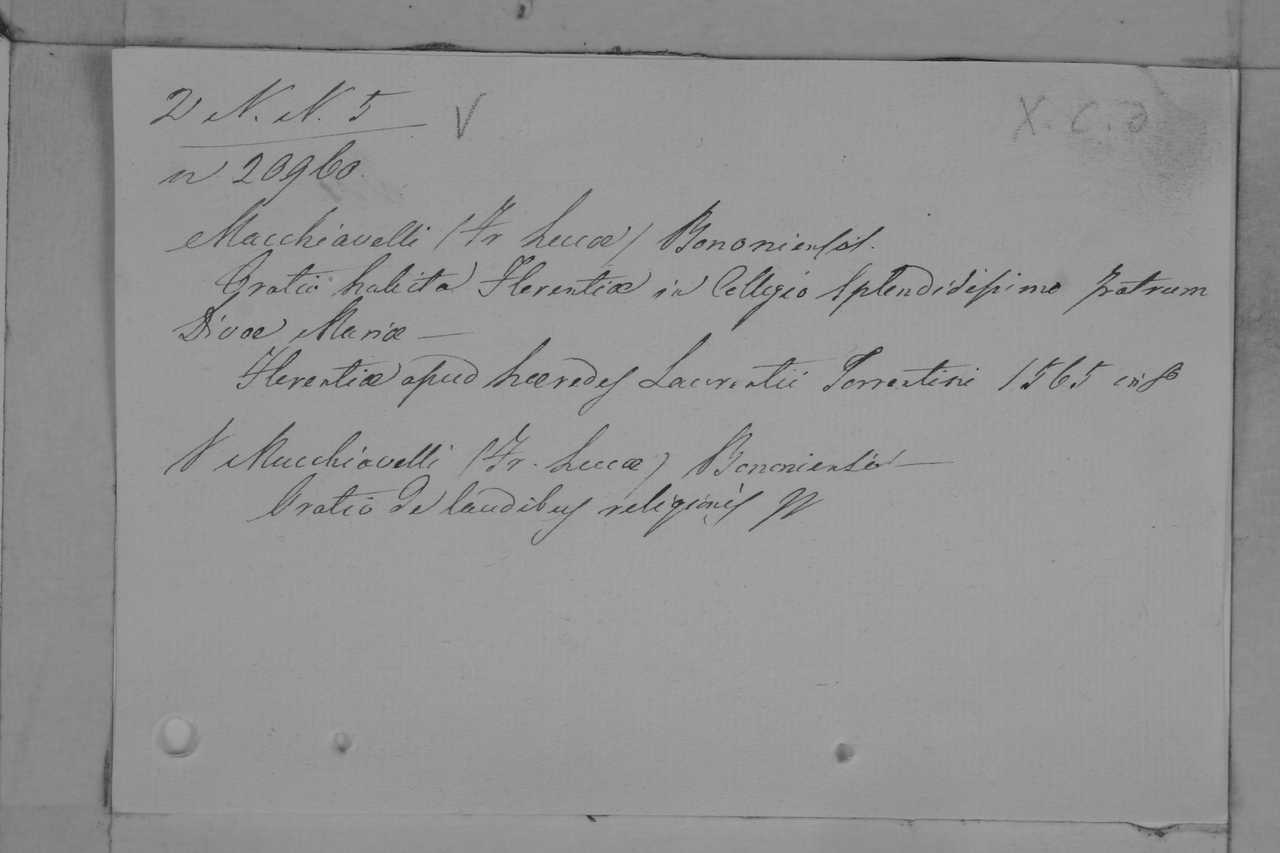 2 N. N. 5 V X. C. d
n 20960.
Macchiavelli (Fr Lucæ) Bononiensis.
Oratio habita Florentiæ in Collegio splendidissimo Fratrum
Divæ Mariæ —
Florentiæ apud hæredes Laurentii Torrentini 1565 in 8º
V Macchiavelli (Fr. Lucæ) Bononiensis —
Oratio de laudibus religionis